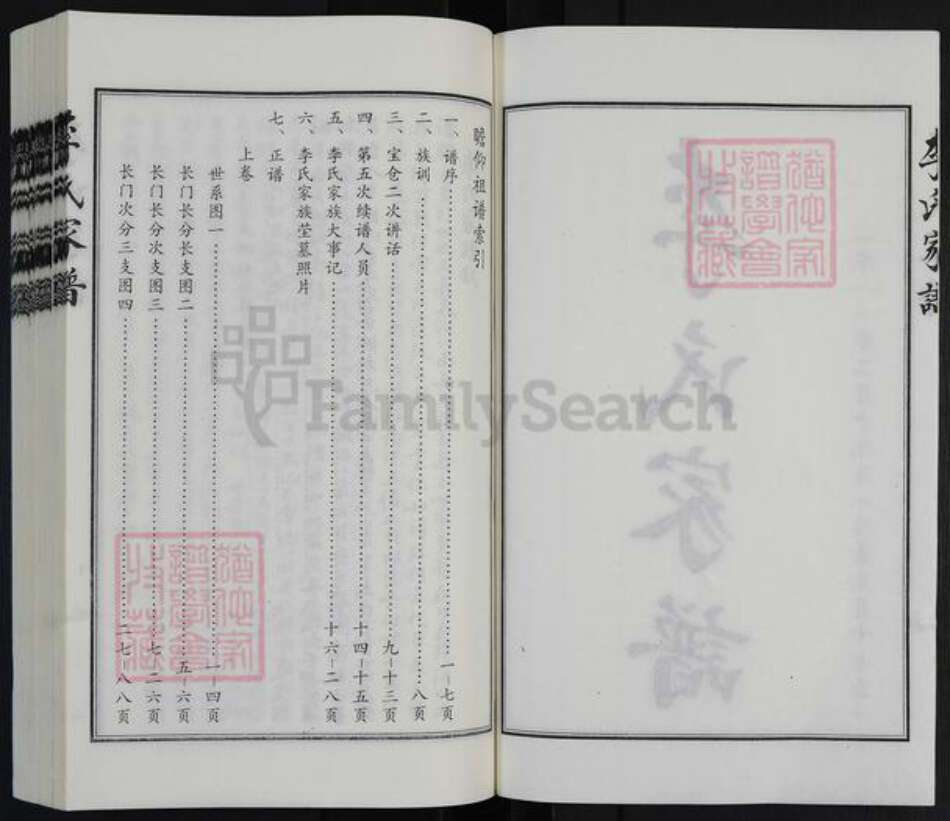 李氏家譜
瞻仰祖谱索引
一、谱序……一－七页
二、族训……八页
三、宝仓二次讲话……九－十三页
四、第五次续谱人员……十四－十五页
五、李氏家族大事记……十六－二八页
六、李氏家族茔墓照片
七、正谱
上卷
世系图一……一－四页
长门长分长支图二……五－六页
长门长分次支图三……七－二六页
长门次分三支图四……二七－八八页
李氏家譜
猶他家
譜學會
收藏
猶他家
譜學會
收藏
FamilySearch